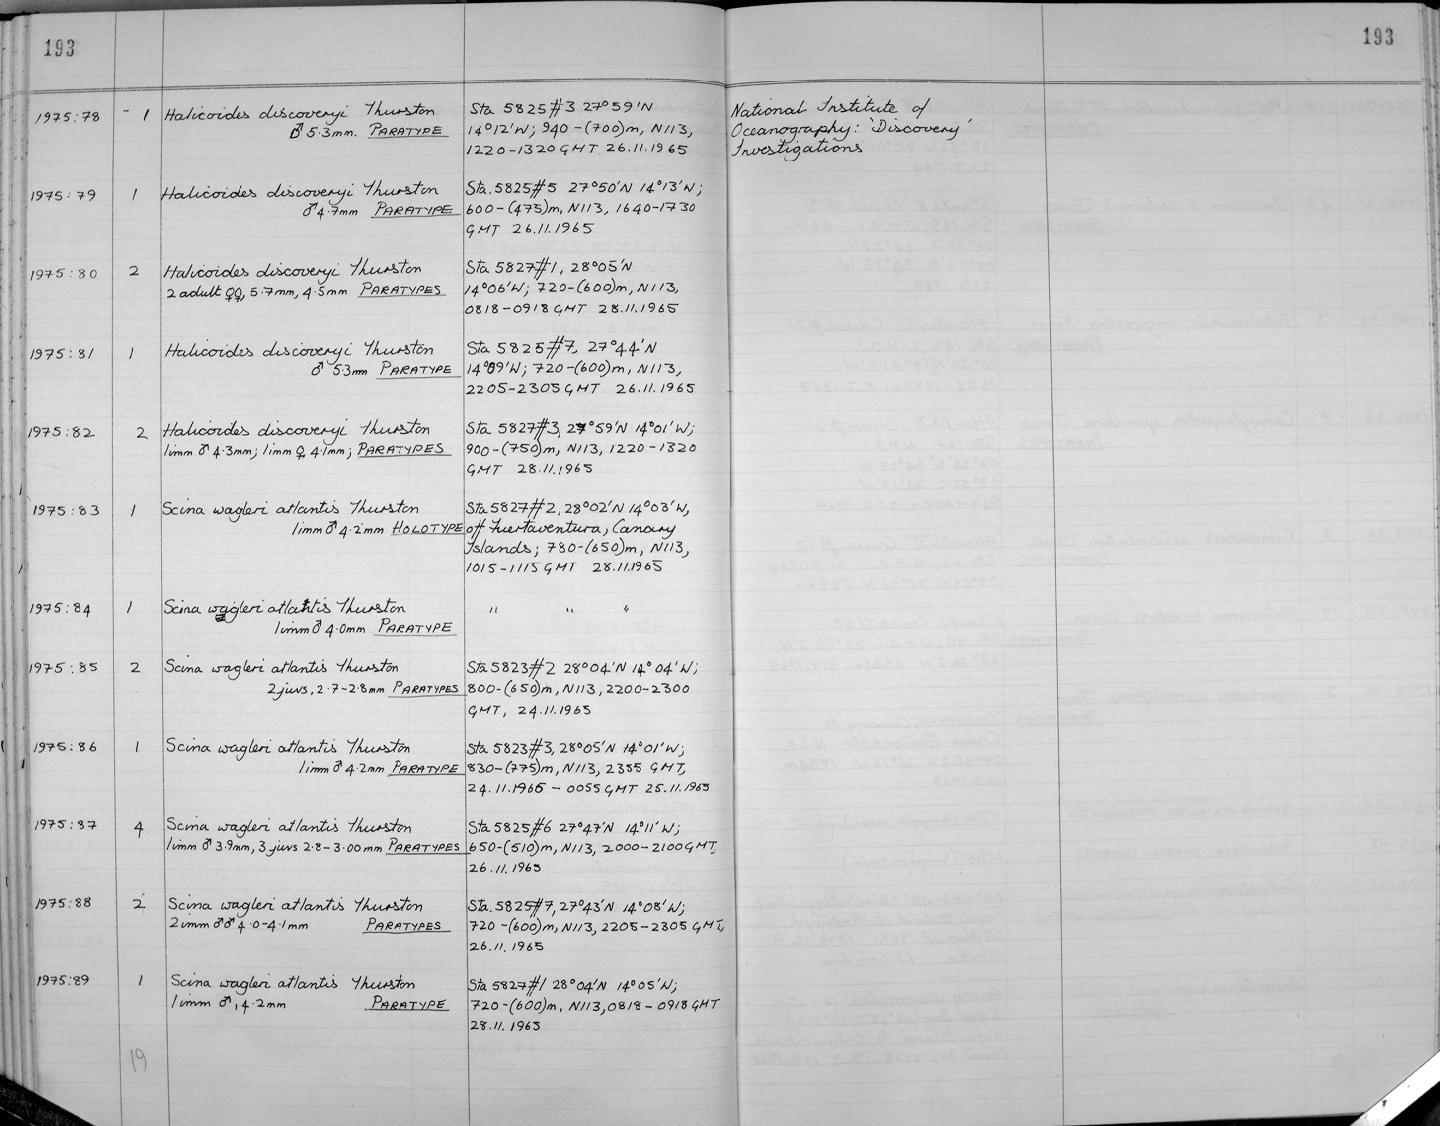 193
193
1975:78 1 Halicoides discoveryi Thurston
♂ 5·3mm. PARATYPE
Sta 5825#3 27°59'N
14°12'W; 940-(700)m, N113,
1220-1320 GMT 26.11.1965
National Institute of
Oceanography: 'Discovery'
Investigations
1975:79 1 Halicoides discoveryi Thurston
♂ 4·7mm PARATYPE
Sta. 5825#5 27°50'N 14°13'W;
600-(475)m, N113, 1640-1730
GMT 26.11.1965
1975:80 2 Halicoides discoveryi Thurston
2 adult ♀♀, 5·7mm, 4·5mm PARATYPES
Sta 5827#1, 28°05'N
14°06'W; 720-(600)m, N113,
0818-0918 GMT 28.11.1965
1975:81 1 Halicoides discoveryi Thurston
♂ 5·3mm PARATYPE
Sta 5825#7, 27°44'N
14°09'W; 720-(600)m, N113,
2205-2305 GMT 26.11.1965
1975:82 2 Halicoides discoveryi Thurston
1imm ♂ 4·3mm; 1imm ♀ 4·1mm; PARATYPES
Sta 5827#3, 27°59'N 14°01'W;
900-(750)m, N113, 1220-1320
GMT 28.11.1965
1975:83 1 Scina wagleri atlantis Thurston
1imm ♂ 4·2mm HOLOTYPE
Sta 5827#2, 28°02'N 14°03'W,
off Fuertaventura, Canary
Islands; 780-(650)m, N113,
1015-1115 GMT 28.11.1965
1975:84 1 Scina wagleri atlantis Thurston
1imm ♂ 4·0mm PARATYPE
" " "
1975:85 2 Scina wagleri atlantis Thurston
2juvs, 2·7-2·8mm PARATYPES
Sta 5823#2 28°04'N 14°04'W;
800-(650)m, N113, 2200-2300
GMT, 24.11.1965
1975:86 1 Scina wagleri atlantis Thurston
1imm ♂ 4·2mm PARATYPE
Sta 5823#3, 28°05'N 14°01'W;
830-(775)m, N113, 2355 GMT,
24.11.1965 - 0055 GMT 25.11.1965
1975:87 4 Scina wagleri atlantis Thurston
1imm ♂ 3·9mm, 3 juvs 2·8-3·00mm PARATYPES
Sta 5825#6 27°47'N 14°11'W;
650-(510)m, N113, 2000-2100 GMT,
26.11.1965
1975:88 2 Scina wagleri atlantis Thurston
2imm ♂♂ 4·0-4·1mm PARATYPES
Sta. 5825#7, 27°43'N 14°08'W;
720-(600)m, N113, 2205-2305 GMT,
26.11.1965
1975:89 1 Scina wagleri atlantis Thurston
1imm ♂, 4·2mm PARATYPE
Sta 5827#1 28°04'N 14°05'W;
720-(600)m, N113, 0818-0918 GMT
28.11.1965
19